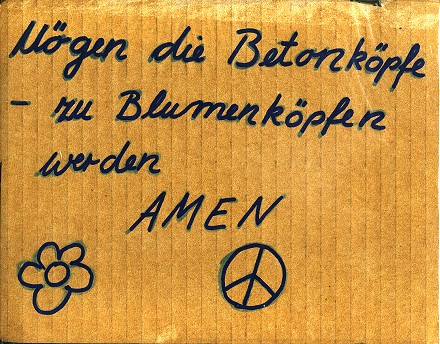 Mögen die Betonköpfe
- zu Blumenköpfen
werden
AMEN